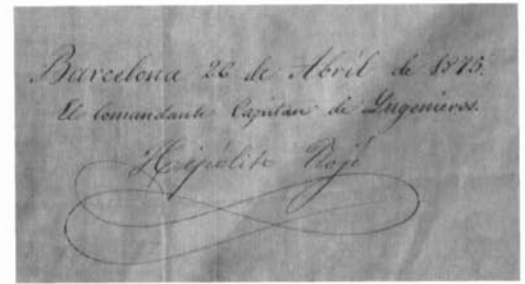 Barcelona 26 de Abril de 1875.
El Comandante Capitán de Ingenieros.
Hipólito Rojí